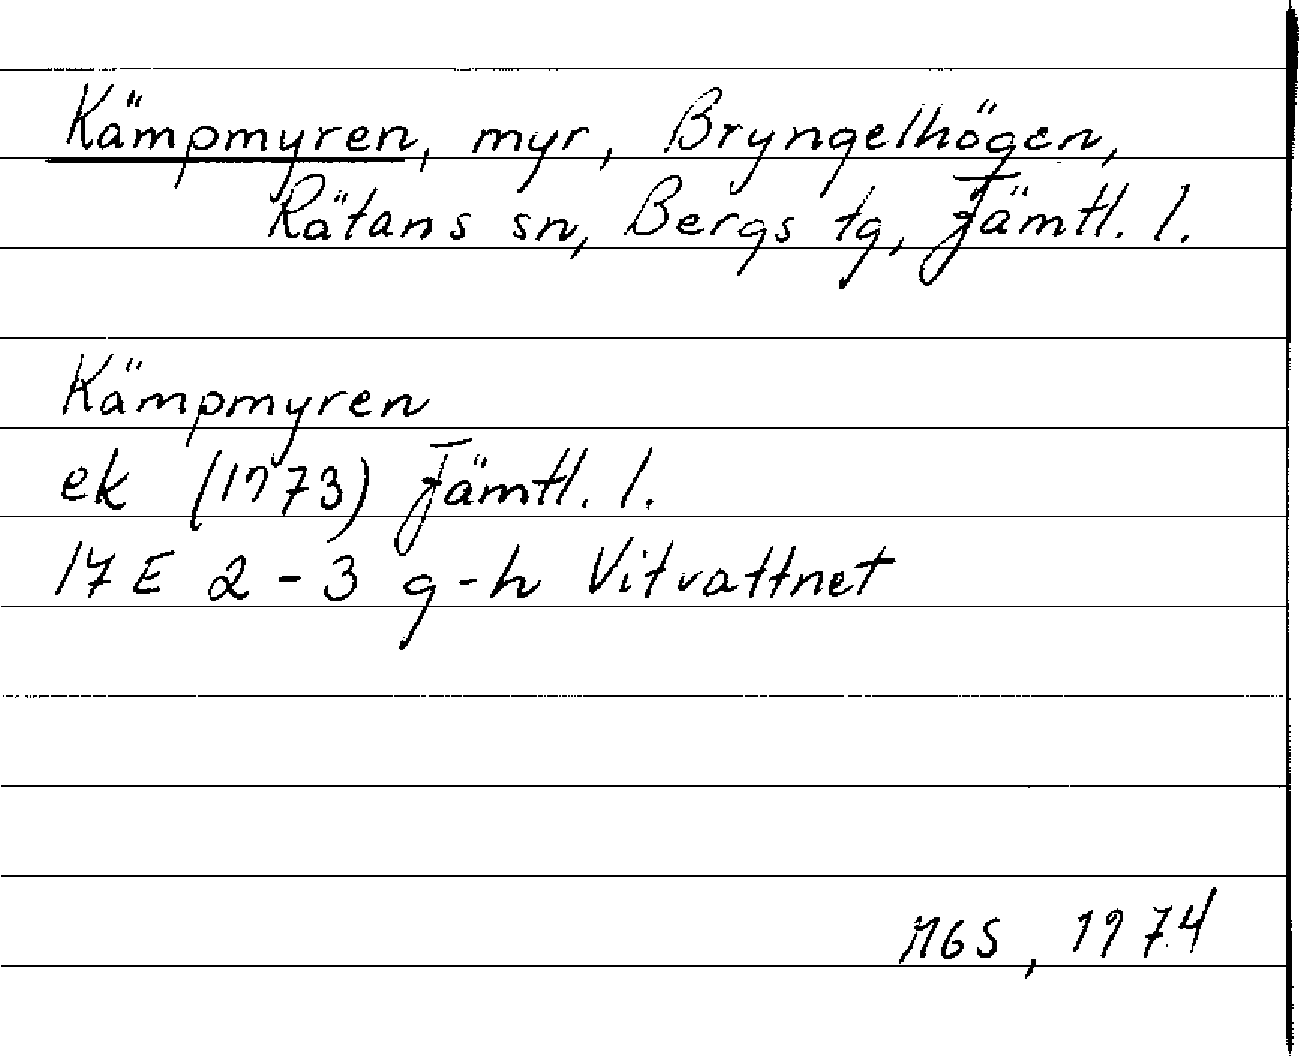 Kämpmyren, myr, Bryngelhögen,
Rätans sn, Bergs tg, Jämtl. l.
Kämpmyren
ek (1973) Jämtl. l.
17 E 2-3 g-h Vitvattnet
MGS, 1974